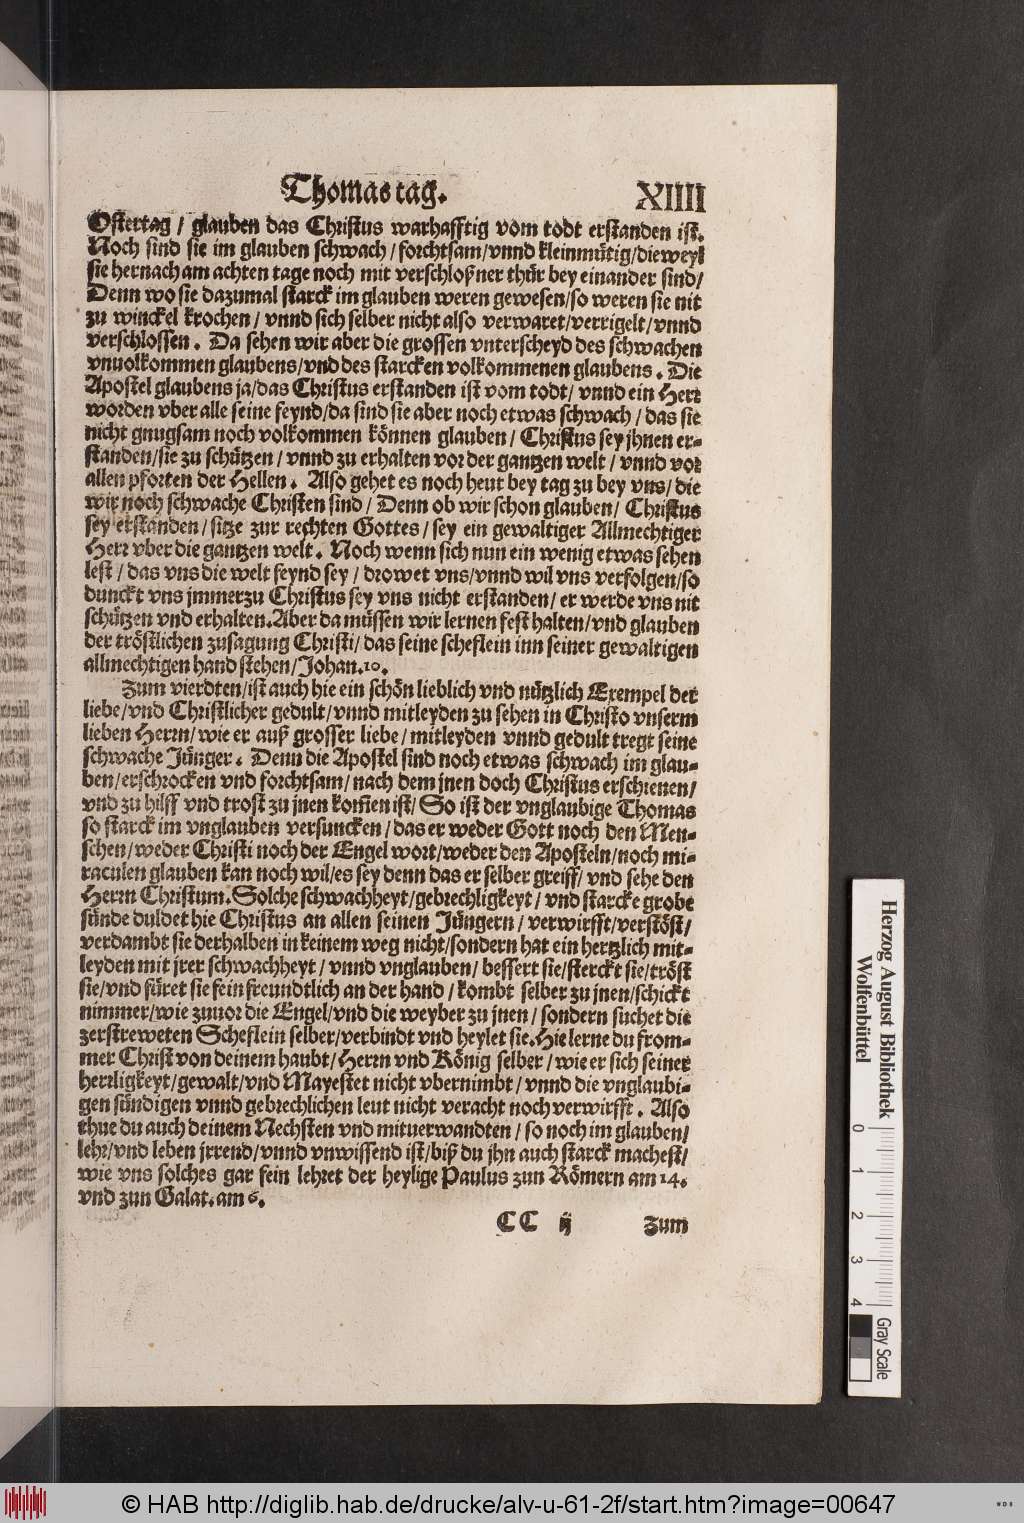 Thomas tag. XIIII
Ostertag / glauben das Christus warhafftig vom todt erstanden ist.
Noch sind sie im glauben schwach / forchtsam/vnnd kleinmütig/dieweyl
sie hernach am achten tage noch mit verschloßner thür bey einander sind/
Denn wo sie dazumal starck im glauben weren gewesen/so weren sie nit
zu winckel krochen / vnnd sich selber nicht also verwaret/verrigelt/vnnd
verschlossen. Da sehen wir aber die grossen vnterscheyd des schwachen
vnuolkommen glaubens/vnd des starcken volkommenen glaubens. Die
Apostel glaubens ja/das Christus erstanden ist vom todt/ vnnd ein Herr
worden vber alle seine feynd/da sind sie aber noch etwas schwach / das sie
nicht gnugsam noch volkommen können glauben / Christus sey jhnen er-
standen/sie zu schützen / vnnd zu erhalten vor der gantzen welt / vnnd vor
allen pforten der Hellen. Also gehet es noch heut bey tag zu bey vns/ die
wir noch schwache Christen sind / Denn ob wir schon glauben/ Christus
sey erstanden / sitze zur rechten Gottes / sey ein gewaltiger Allmechtiger
Herr vber die gantzen welt. Noch wenn sich nun ein wenig etwas sehen
lest / das vns die welt feynd sey / drowet vns/vnnd wil vns verfolgen/so
dunckt vns jmmerzu Christus sey vns nicht erstanden/ er werde vns nit
schützen vnd erhalten. Aber da müssen wir lernen fest halten/vnd glauben
der tröstlichen zusagung Christi / das seine scheflein inn seiner gewaltigen
allmechtigen hand stehen/Johan.10.
Zum vierdten/ist auch hie ein schön lieblich vnd nützlich Exempel der
liebe/vnd Christlicher gedult/vnnd mitleyden zu sehen in Christo vnserm
lieben Herrn/wie er auß grosser liebe/mitleyden vnnd gedult tregt seine
schwache Jünger. Denn die Apostel sind noch etwas schwach im glau-
ben/erschrocken vnd forchtsam/nach dem jnen doch Christus erschienen/
vnd zu hilff vnd trost zu jnen kom̃en ist/ So ist der vnglaubige Thomas
so starck im vnglauben versuncken / das er weder Gott noch den Men-
schen/weder Christi noch der Engel wort/weder den Aposteln/noch mi-
raculen glauben kan noch wil/es sey denn das er selber greiff/ vnd sehe den
Herrn Christum. Solche schwachheyt/gebrechligkeyt / vnd starcke grobe
sünde duldet hie Christus an allen seinen Jüngern / verwirfft/verstöst/
verdambt sie derhalben in keinem weg nicht/sondern hat ein hertzlich mit-
leyden mit jrer schwachheyt / vnnd vnglauben/ bessert sie/sterckt sie/tröst
sie/vnd füret sie fein freundtlich an der hand / kombt selber zu jnen/schickt
nimmer/wie zuuor die Engel/vnd die weyber zu jnen / sondern suchet die
zerstreweten Scheflein selber/verbindt vnd heylet sie. Hie lerne du from-
mer Christ von deinem haubt/Herrn vnd König selber/wie er sich seiner
herrligkeyt/gewalt/vnd Mayestet nicht vbernimbt / vnnd die vnglaubi-
gen sündigen vnnd gebrechlichen leut nicht veracht noch verwirfft. Also
thue du auch deinem Nechsten vnd mituerwandten / so noch im glauben/
lehr/vnd leben jrrend/vnnd vnwissend ist/biß du jhn auch starck machest/
wie vns solches gar fein lehret der heylige Paulus zun Römern am 14.
vnd zun Galat. am 6.
CC ij Zum
Herzog August Bibliothek
Wolfenbüttel
0 1 2 3 4
Gray Scale
© HAB http://diglib.hab.de/drucke/alv-u-61-2f/start.htm?image=00647